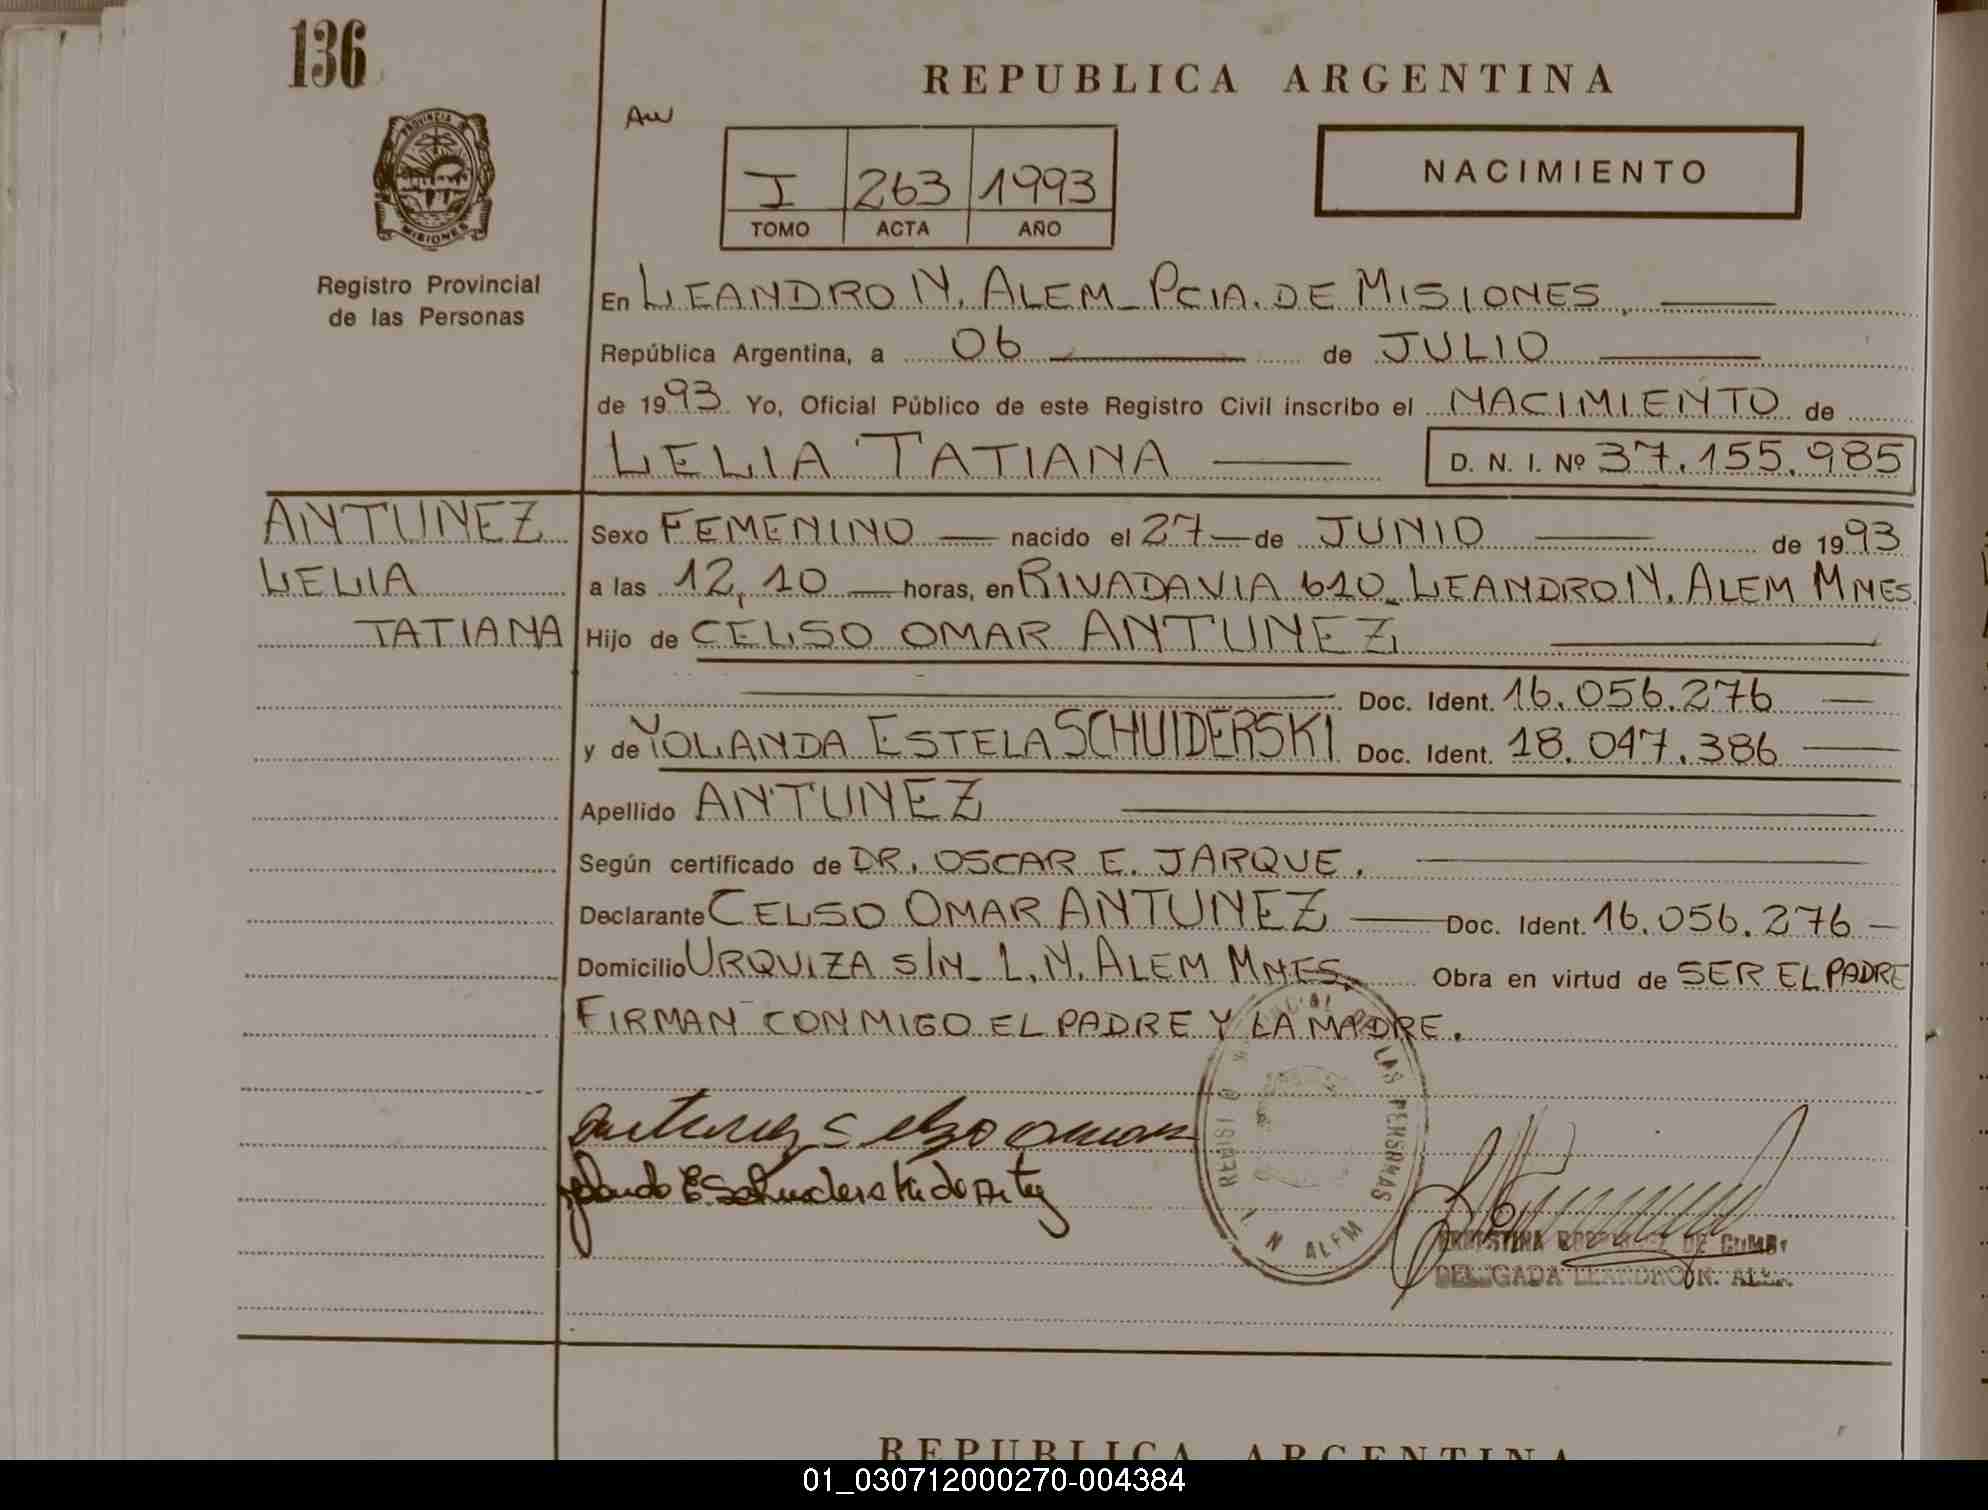 136
REPUBLICA ARGENTINA
PROVINCIA
MISIONES
Registro Provincial
de las Personas
I 263 1993
TOMO ACTA AÑO
NACIMIENTO
En LEANDRO N. ALEM_ PCIA. DE MISIONES,
República Argentina, a 06 de JULIO
de 1993. Yo, Oficial Público de este Registro Civil inscribo el NACIMIENTO de
LELIA TATIANA D. N. I. Nº 37.155.985
ANTUNEZ
LELIA
TATIANA
Sexo FEMENINO nacido el 27 de JUNIO de 1993
a las 12,10 horas, en RIVADAVIA 610_ LEANDRO N. ALEM MNES.
Hijo de CELSO OMAR ANTUNEZ
Doc. Ident. 16.056.276
y de YOLANDA ESTELA SCHUIDERSKI Doc. Ident. 18.047.386
Apellido ANTUNEZ
Según certificado de DR. OSCAR E. JARQUE.
Declarante CELSO OMAR ANTUNEZ Doc. Ident. 16.056.276
Domicilio URQUIZA S/N_ L.N. ALEM MNES. Obra en virtud de SER EL PADRE
FIRMAN CONMIGO EL PADRE Y LA MADRE.
antunez celso omar
LAS PERSONAS
L N ALEM
DE
DELEGADA LEANDRO N. ALEM
REPUBLICA ARGENTINA
01_030712000270-004384